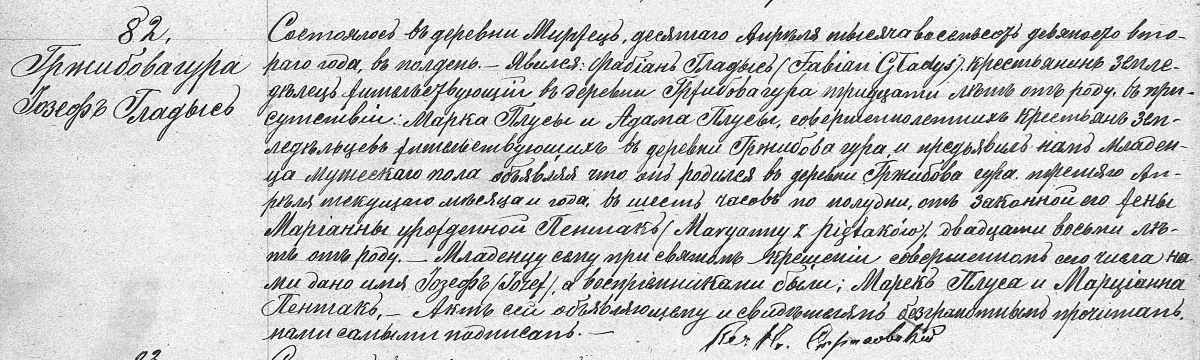 82,
Гржибовагура
Іозефъ Гладысь
Состоялось въ деревни Мирзецъ, десятаго Апрѣля тысяча восемьсотъ девяносто вто-
раго года, въ полдень. — Явился: Фабіанъ Гладысь (Fabian Gladys), крестьянинъ земле-
дѣлецъ жительствующій въ деревни Гржибовагура тридцати лѣтъ отъ роду, въ при-
сутствіи: Марка Плусы и Адама Плусы, совершеннолетнихъ крестьянъ зем-
ледѣльцевъ жительствующихъ въ деревни Гржибова гура, и предъявилъ намъ младен-
ца мужескаго пола объявляя что онъ родился въ деревни Гржибова гура, третяго Ап-
рѣля текущаго мѣсяца и года, въ шесть часовъ по полудни, отъ законной его жены
Маріанны урожденной Пентакъ (Maryanny z Piętaków), двадцати восьми лѣ-
тъ отъ роду. — Младенцу сему при святомъ крещеніи совершенномъ сего числа на-
ми дано имя Іозефъ (Józef), а воспріемниками были; Марекъ Плуса и Марціанна
Пентакъ, — Актъ сей объявляющему и свидѣтелямъ безграмотнымъ прочитанъ,
нами самыми подписанъ. —